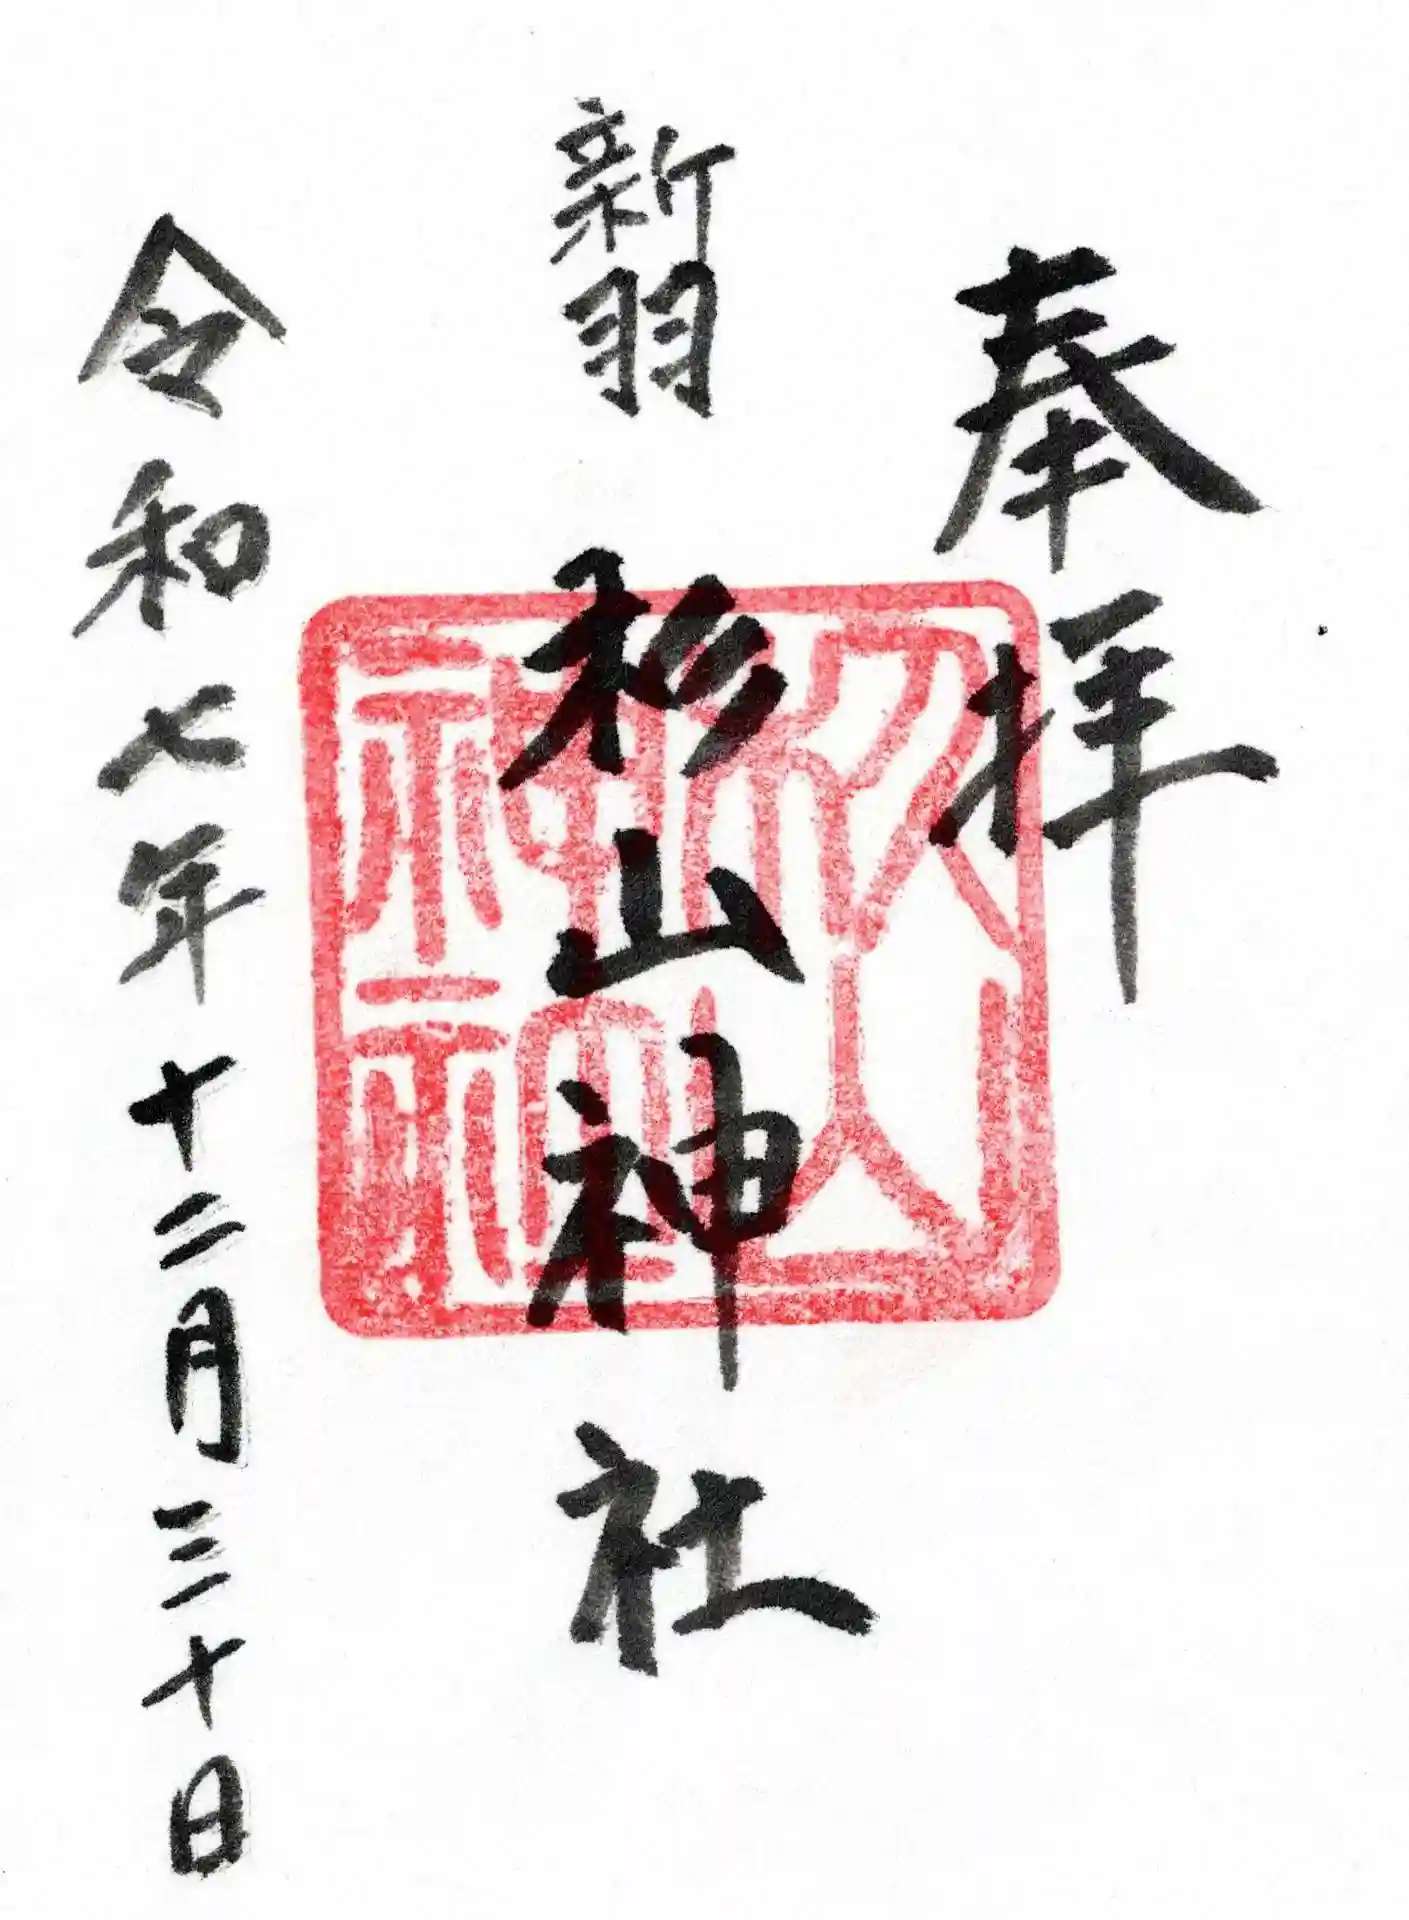 奉拝
新羽
杉山神社
令和七年十二月三十日